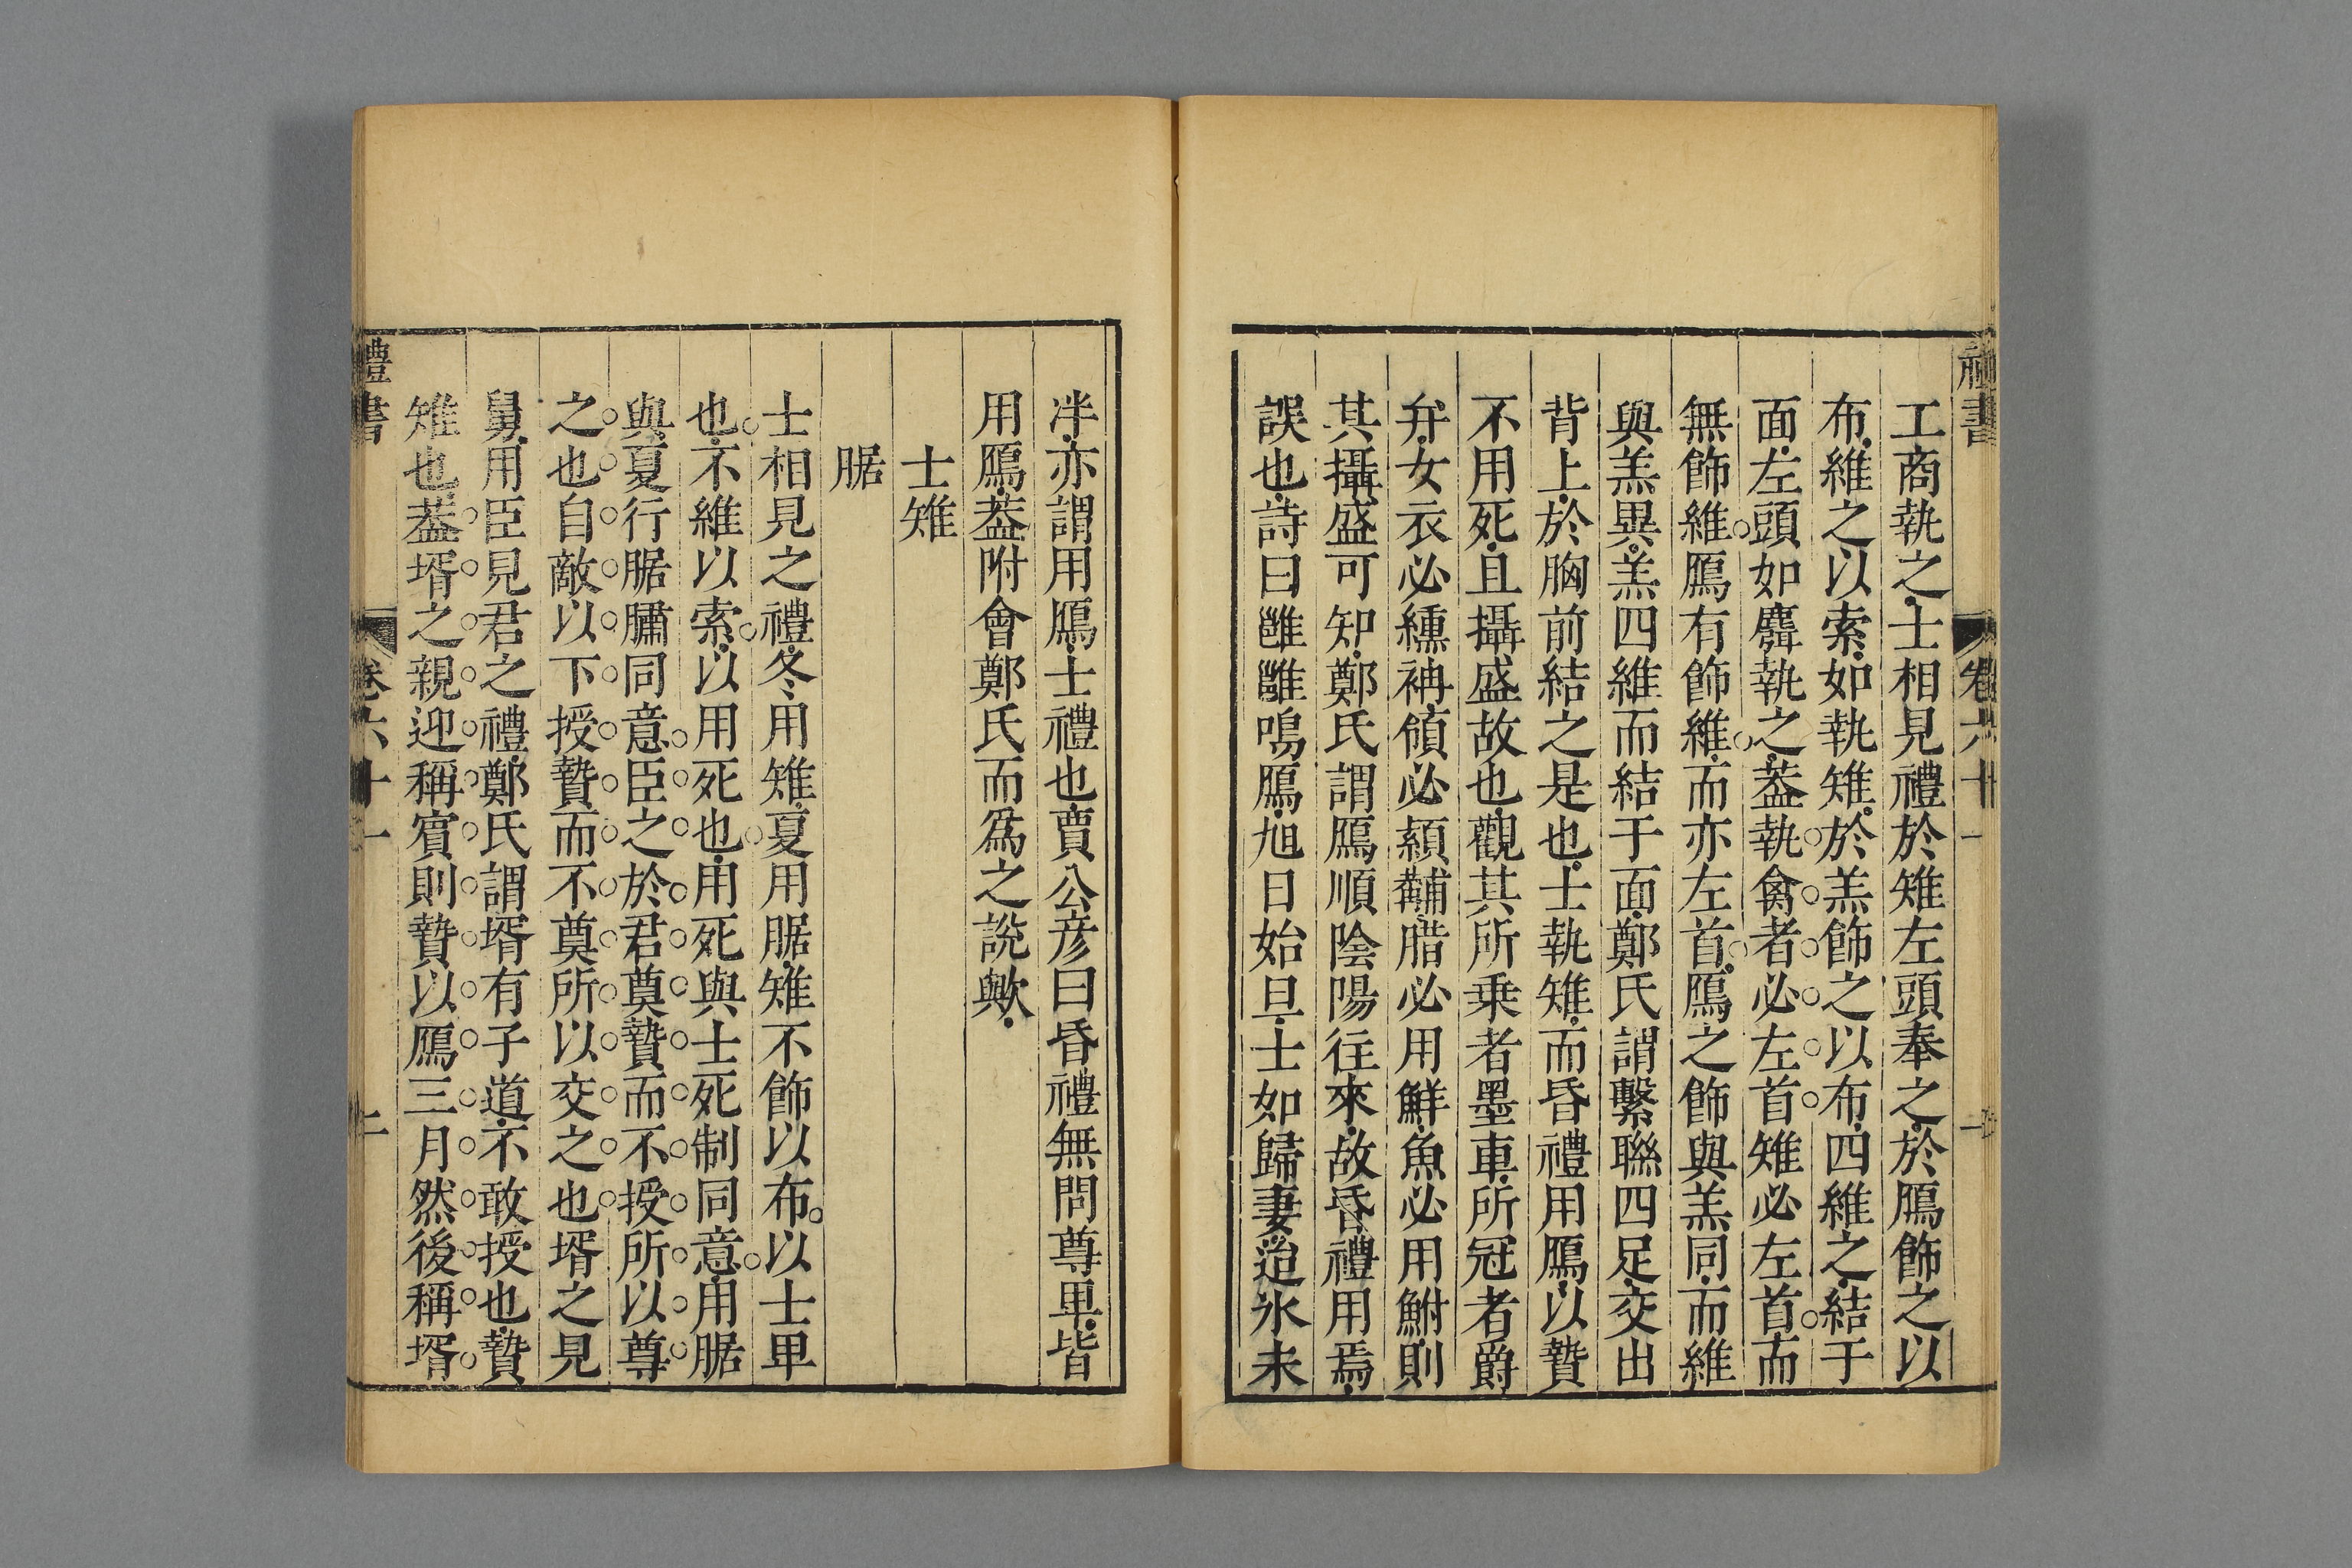 禮書 卷六十一
工商執之士相見禮於雉左頭奉之於鴈飾之以
布維之以索如執雉於羔飾之以布四維之結于
面左頭如麛執之葢執禽者必左首雉必左首而
無飾維鴈有飾維而亦左首鴈之飾與羔同而維
與羔異羔四維而結于面鄭氏謂繫聯四足交出
背上於胸前結之是也士執雉而昏禮用鴈以贄
不用死且攝盛故也觀其所乗者墨車所冠者爵
弁女衣必纁袡領必熲黼腊必用鮮魚必用鮒則
其攝盛可知鄭氏謂鴈順陰陽往來故昏禮用焉
誤也詩曰雝雝鳴鴈旭日始旦士如歸妻迨氷未
泮亦謂用鴈士禮也賈公彦曰昏禮無問尊𤰞皆
用鴈葢附會鄭氏而爲之說歟
士雉
腒
士相見之禮冬用雉夏用腒雉不飾以布以士𤰞
也不維以索以用死也用死與士死制同意用腒
與夏行腒鱐同意臣之於君奠贄而不授所以尊
之也自敵以下授贄而不奠所以交之也壻之見
舅用臣見君之禮鄭氏謂壻有子道不敢授也贄
雉也葢壻之親迎稱賓則贄以鴈三月然後稱壻
禮書 卷六十一 二